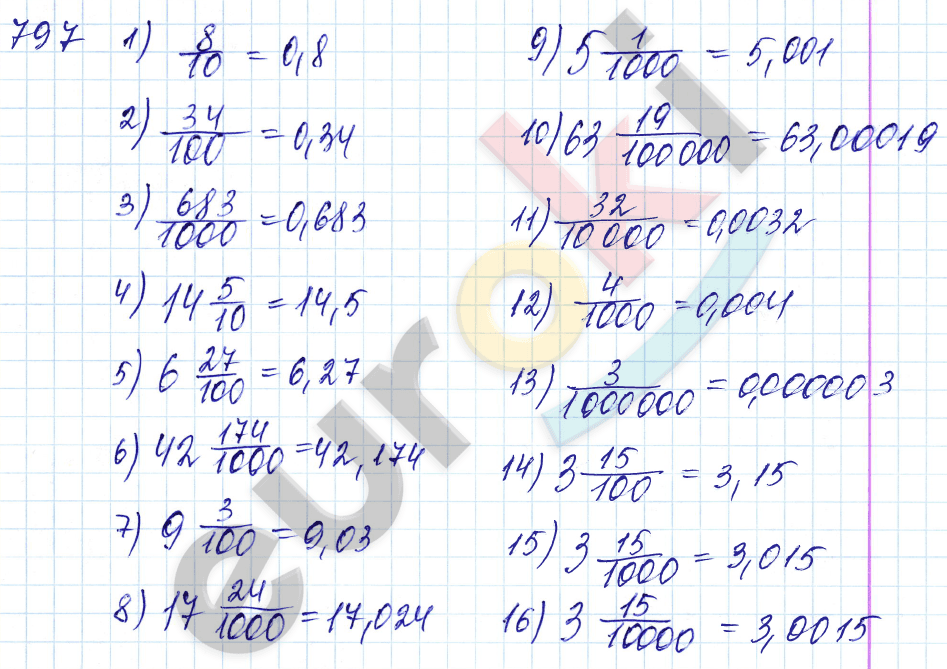 797
1) 8/10 = 0,8
2) 34/100 = 0,34
3) 683/1000 = 0,683
4) 14 5/10 = 14,5
5) 6 27/100 = 6,27
6) 42 174/1000 = 42,174
7) 9 3/100 = 9,03
8) 17 24/1000 = 17,024
9) 5 1/1000 = 5,001
10) 63 19/100 000 = 63,00019
11) 32/10 000 = 0,0032
12) 4/1000 = 0,004
13) 3/1000000 = 0,000003
14) 3 15/100 = 3,15
15) 3 15/1000 = 3,015
16) 3 15/10000 = 3,0015
euroki